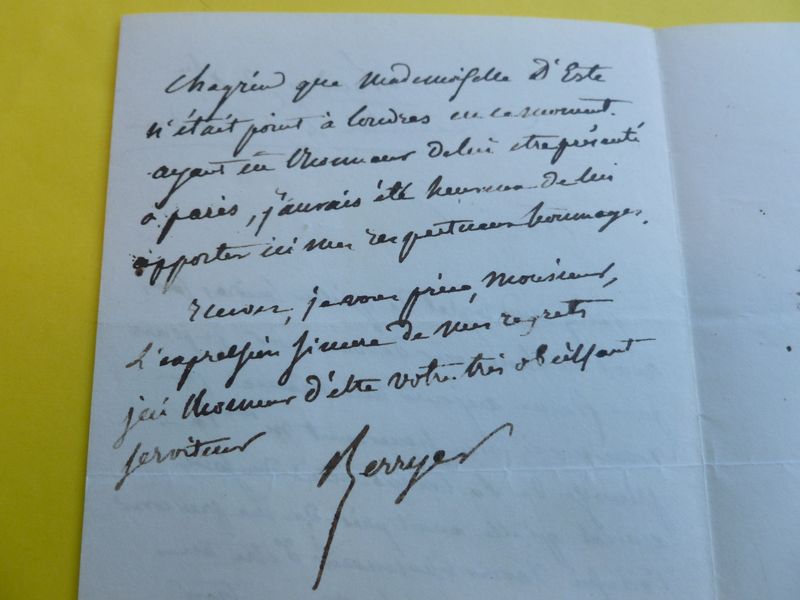 chagrin que Mademoiselle D'Este
n'était point à Londres en ce moment.
ayant eû l'honneur de lui etre présenté
a paris, j'aurais été heureux de lui
apporter ici mes respectueux hommages.
recevez, je vous prie, Monsieur,
L'expression sincere de mes regrets
j'ai l'honneur d'être votre très obéissant
serviteur
Berryer